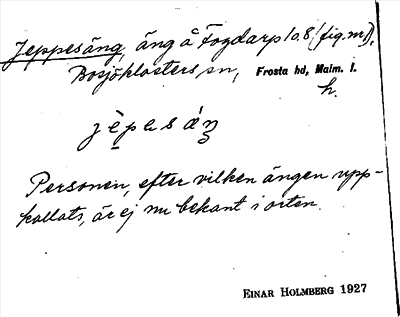 Jeppesäng, äng å Fogdarp 10,8 (fig.m)).
Bosjöklosters sn, Frosta hd, Malm. l.
h.
Personen, efter vilken ängen upp-
kallats, är ej nu bekant i orten.
EINAR HOLMBERG 1927